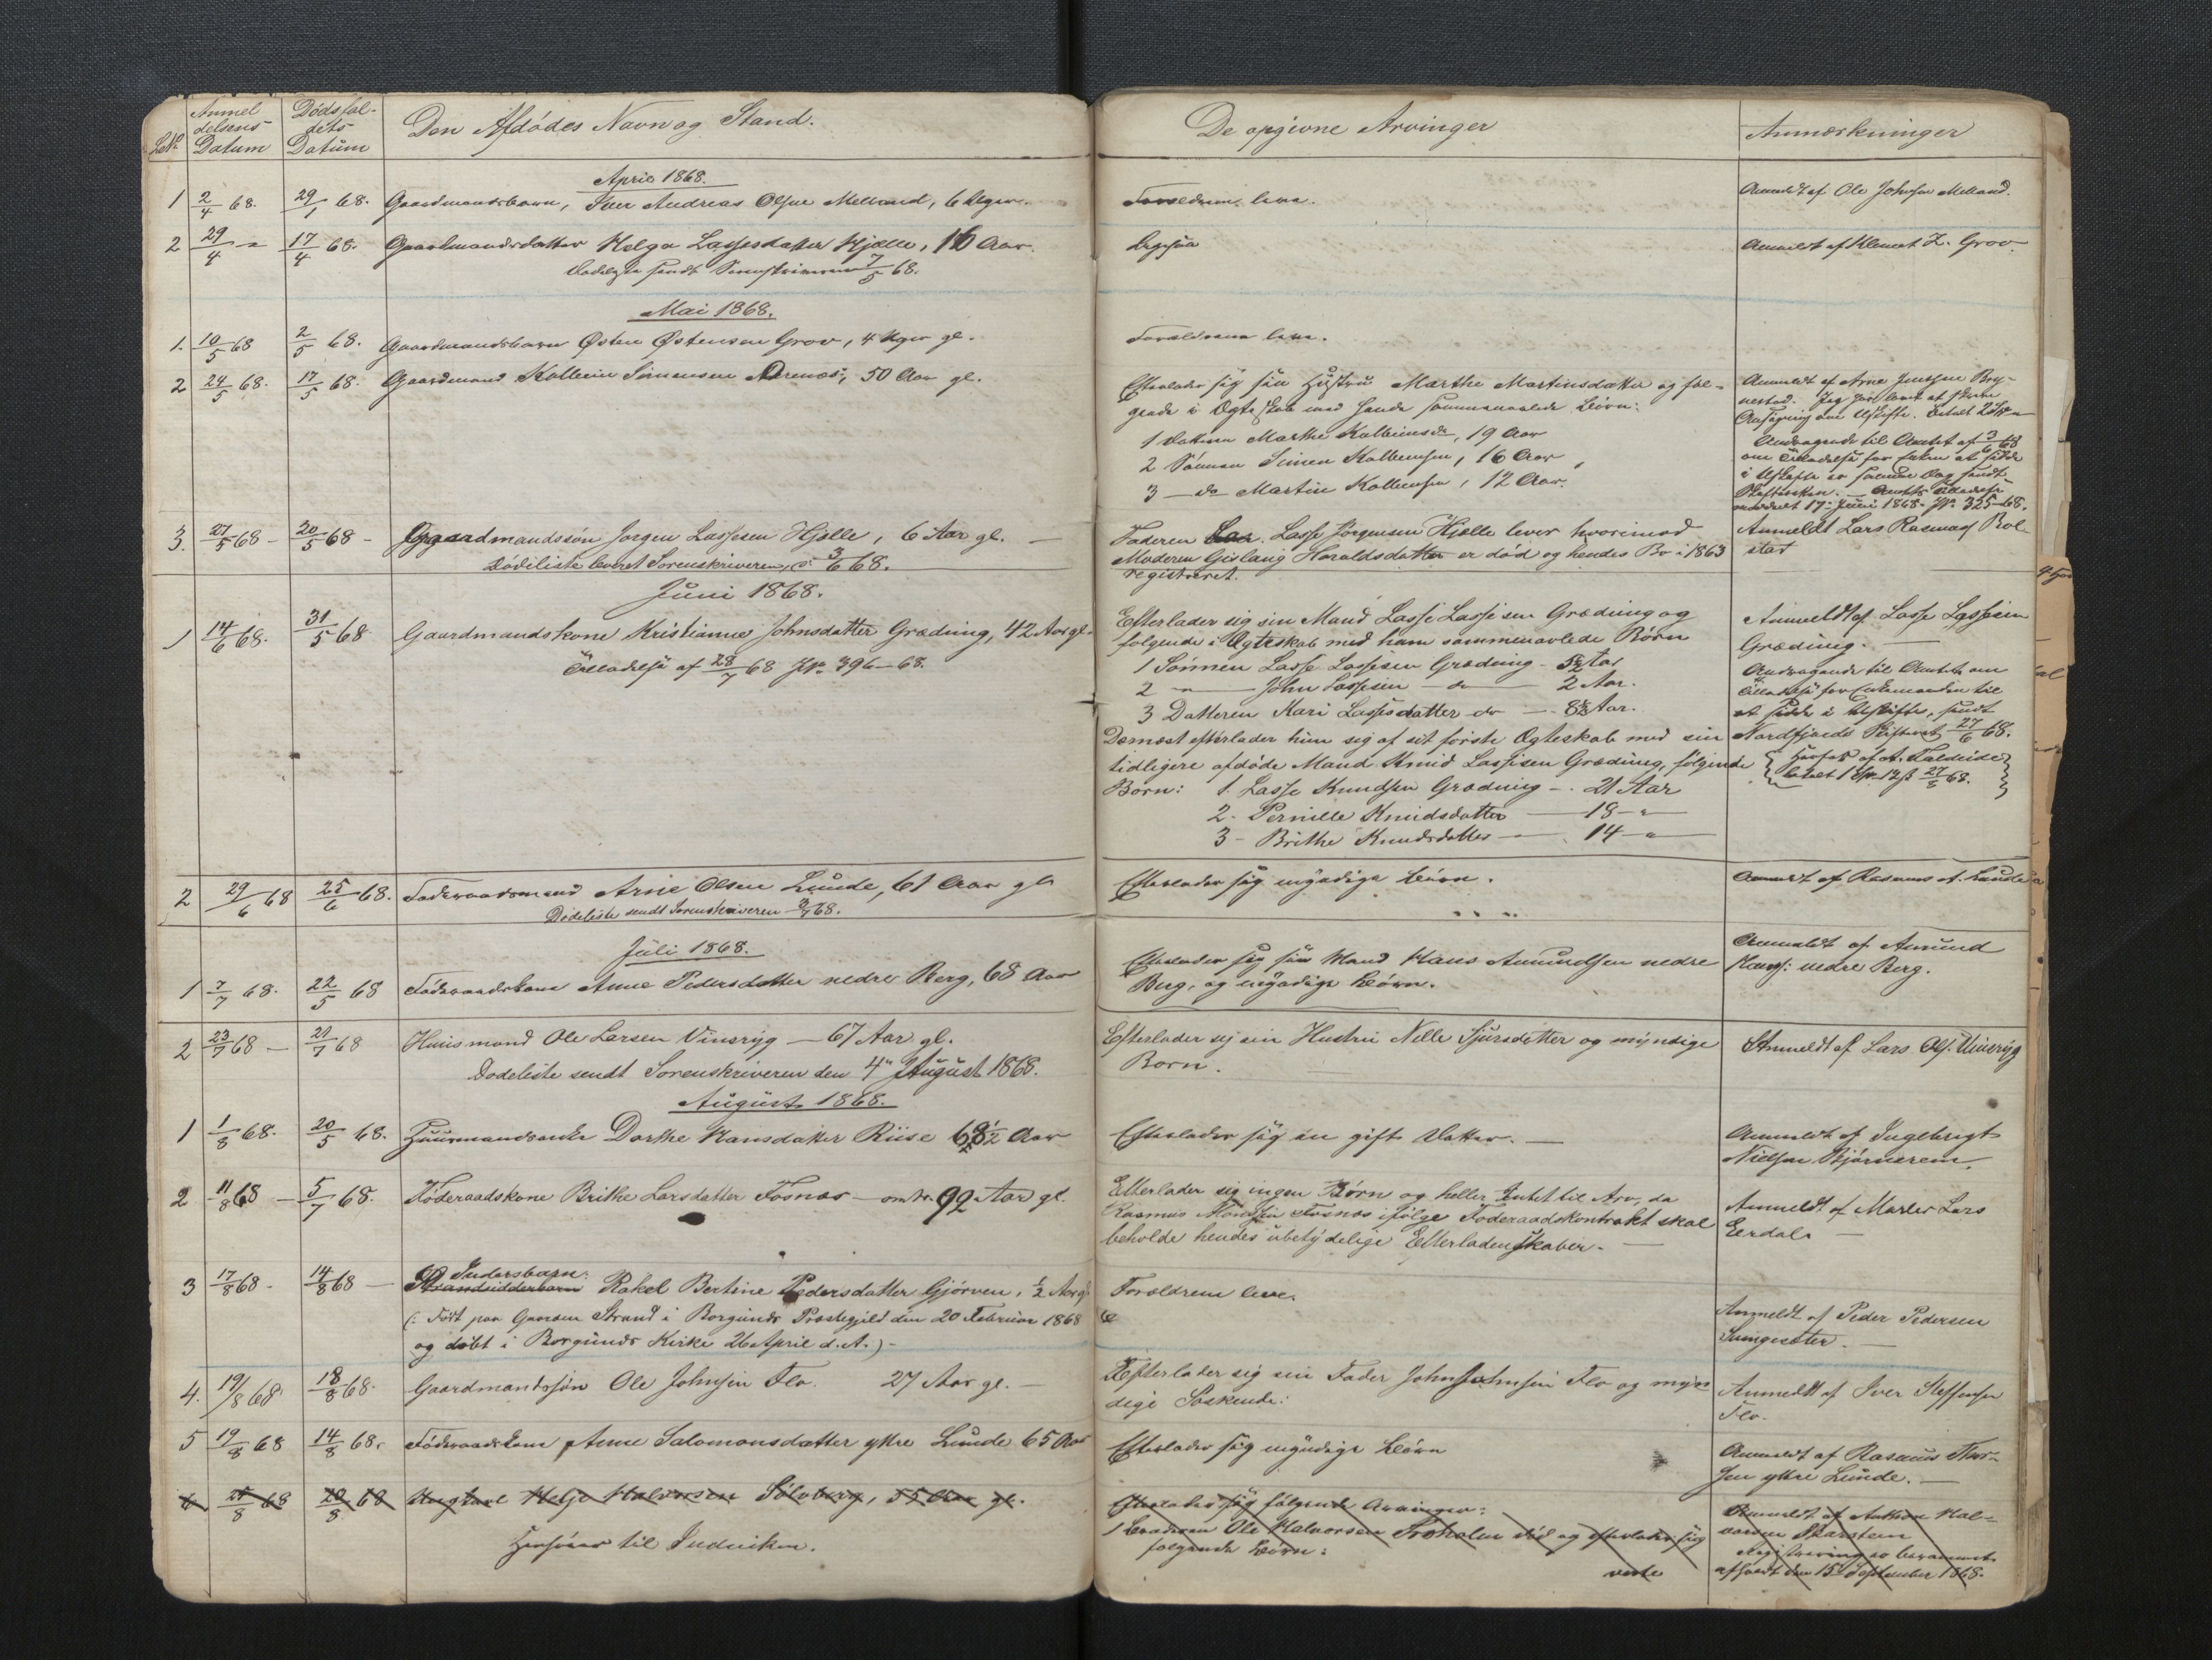 LNo
Anmel
delsens
Datum
Dødsfal-
dets
Datum
Den Afdødes Navn og Stand.
De opgivne Arvinger
Anmærkninger
April 1868.
1 2/4 68. 29/1 68. Gaardmandsbarn, Iver Andreas Olsen Melland, 6 Uger.
Forældrene leve.
Anmeldt af Ole Johnsen Melland.
2 29/4 " 17/4 68. Gaardmandsdatter Helga Lassesdatter Hjelle, 16 Aar.
Dødsliste sendt Sorenskriveren 7/5 68.
Ligesaa
Anmeldt af Klemet L. Grov
Mai 1868.
1. 10/5 68 2/5 68. Gaardmandsbarn Østen Østensen Grov, 4 Uger gl.
Forældrene leve.
2 24/5 68. 17/5 68. Gaardmand Kolbein Simensen 50 Aar gl.
Efterlader sig sin Hustru Marthe Martinsdatter og føl-
gende i Ægteskab med hende sammenavlede Børn:
1 Datteren Marthe Kolbeinsdr, 19 Aar
2 Sønnen Simen Kolbeinsen, 16 Aar
3 — do Martin Kolbeinsen, 12 Aar.
Anmeldt af Arne Jenssen Bry-
nestad. Jeg har lovet at skrive
Ansøgning om Uskifte. Betalt
Andragende til Amtet af 3/6 68
om Tilladelse for Enken at sidde
i Uskifte er samme Dag sendt
Skifteretten. — Amtets Tilladelse
meddelt 17 Juni 1868. No. 325-68.
3. 27/5 68 — 20/5 68 — Gaardmandssøn Jørgen Lassesen Hjelle, 6 Aar gl. —
Dødsliste levert Sorenskriveren, d. 3/6 68.
Faderen Lasse Jørgensen Hjelle lever hvorimod
Moderen Gislaug Haraldsdatter er død og hendes Bo i 1863
registreret.
Anmeldt Lars Rasmuss Bol-
stad
Juni 1868.
1 14/6 68. 31/5 68 Gaardmandskone Kristianne Johnsdatter Grædung, 42 Aar gl.
Tilladelse af 28/7 68 No. 396-68.
Efterlader sig sin Mand Lasse Lassesen Grædung og
følgende i Ægteskab med ham sammenavlede Børn
1 Sønnen Lasse Lassesen Grædung - 5½ Aar
2 " — John Lassesen — do — 2 Aar.
3 Datteren Kari Lassesdatter do — 8½ Aar.
Dernæst efterlader hun sig af sit første Ægteskab med sin
tidligere afdøde Mand Knud Lassesen Grædung, følgende
Børn: 1. Lasse Knudsen Grædung — 21 Aar
2. Pernille Knudsdatter — 18 — "
3 - Brithe Knudsdatter — 14 — "
Anmeldt af Lasse Lassesen
Grædung. —
Andragende til Amtet om
Tilladelse for Enkemanden til
at sidde i Uskifte, sendt
Nordfjords Skifteret 27/6 68.
Herfor af A. Taldeide
betalt 1 Spd 12 s 27/6 68.
2 29/6 68 25/6 68. Føderaadsmand Arne Olsen Lunde, 61 Aar gl.
Dødsliste sendt Sorenskriveren 3/7 68.
Efterlader sig myndige Børn.
Anmeldt af Rasmus A. Lunde
Juli 1868.
1 7/7 68. 22/5 68 Føderaadskone Anne Pedersdatter nedre Berg, 68 Aar
Efterlader sig sin Mand Hans Amundsen nedre
Berg, og myndige Børn.
Anmeldt af Amund
Hanss: nedre Berg.
2 23/7 68 — 21/7 68 Huusmand Ole Larsen Vinsryg — 67 Aar gl.
Dødsliste sendt Sorenskriveren den 4de August 1868.
Efterlader sig sin Hustru Nelle Sjursdatter og myndige
Børn.
Anmeldt af Lars Ols. Vinsryg
August 1868.
1 1/8 68. 20/5 68. Huusmandsenke Dorthe Hansdatter Riise 68½ Aar
Efterlader sig en gift Datter. —
Anmeldt af Ingebrigt
Nielsen Bjørnerem.
2 11/8 68 — 5/7 68. Føderaadskone Brithe Larsdatter Fosnæs — omtr. 92 Aar gl.
Efterlader sig ingen Børn og heller Intet til Arv, da
Rasmus Monssen Fosnæs ifølge Føderaadskontrakt skal
beholde hendes ubetydelige Efterladenskaber. —
Anmeldt af Marler Lars
Eerdal. —
3 17/8 68. 14/8 68 — Indersbarn:
Strandsidderbarn Rakel Bertine Pedersdatter Gjørven, ½ Aar gl
(: Født paa Gaarden Strand i Borgunds Præstegjeld den 20 Februar 1868
og døbt i Borgunds Kirke 26 April d. A.) -
Forældrene leve.
Anmeldt af Peder Pedersen
Svingesæter. —
4. 19/8 68. 18/8 68. Gaardmandssøn Ole Johnsen Flo. 27 Aar gl. —
Efterlader sig sin Fader John Johnsen Flo og myn-
dige Søskende:
Anmeldt af Iver Steffensen
Flo.
5 19/8 68 14/8 68. Føderaadskone Anne Salomonsdatter ytre Lunde 65 Aar
Efterlader sig myndige Børn
Anmeldt af Rasmus
ytre Lunde. —
6 25/8 68 20/8 68 Helje Halvorsen Sølvberg, 55 Aar gl.
Henføres til Indviken.
Efterlader sig følgende Arvinger:
1 Broderen Ole Halvorsen død og efterlader sig
følgende Børn:
verte
Anmeldt af Anthon Hal-
vorsen Skarstein
Registrering er berammet
afholdt den 15 September 1868.